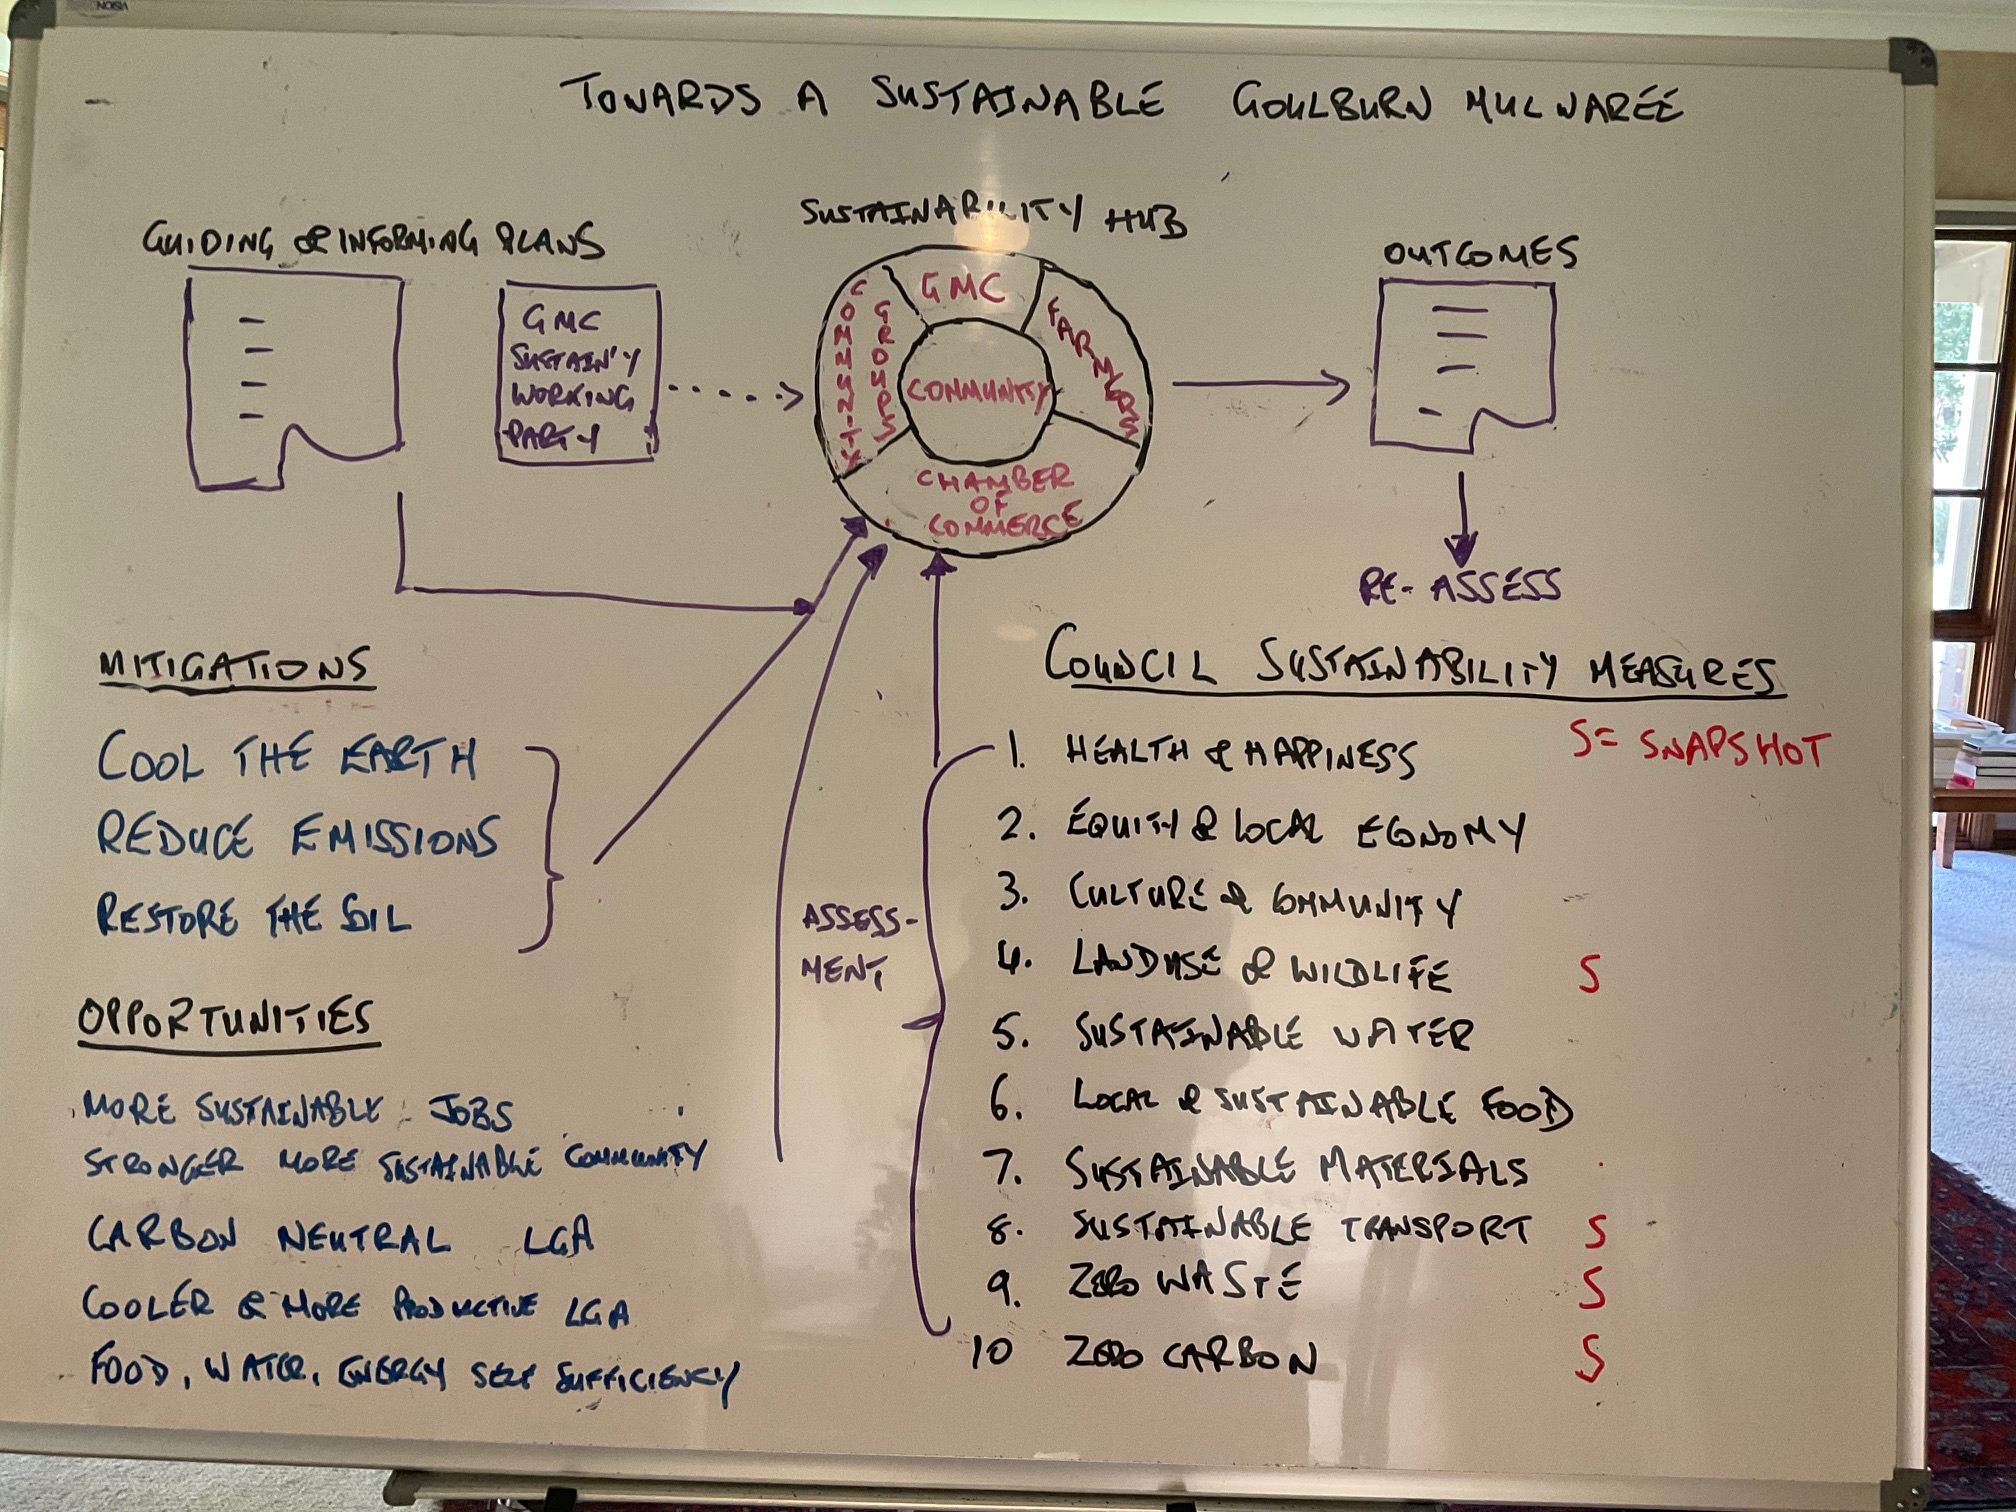 TOWARDS A SUSTAINABLE GOULBURN MULWAREE
GUIDING & INFORMING PLANS
GMC
SUSTAIN'Y
WORKING
PARTY
SUSTAINABILITY HUB
COMMUNITY
GROUPS
GMC
FARMERS
COMMUNITY
CHAMBER
OF
COMMERCE
OUTCOMES
RE-ASSESS
MITIGATIONS
COOL THE EARTH
REDUCE EMISSIONS
RESTORE THE SOIL
OPPORTUNITIES
MORE SUSTAINABLE JOBS
STRONGER MORE SUSTAINABLE COMMUNITY
CARBON NEUTRAL LGA
COOLER & MORE PRODUCTIVE LGA
FOOD, WATER, ENERGY SELF SUFFICIENCY
ASSESS-
MENT
COUNCIL SUSTAINABILITY MEASURES
S= SNAPSHOT
1. HEALTH & HAPPINESS
2. EQUITY & LOCAL ECONOMY
3. CULTURE & COMMUNITY
4. LANDUSE & WILDLIFE S
5. SUSTAINABLE WATER
6. LOCAL & SUSTAINABLE FOOD
7. SUSTAINABLE MATERIALS
8. SUSTAINABLE TRANSPORT S
9. ZERO WASTE S
10 ZERO CARBON S
VISION